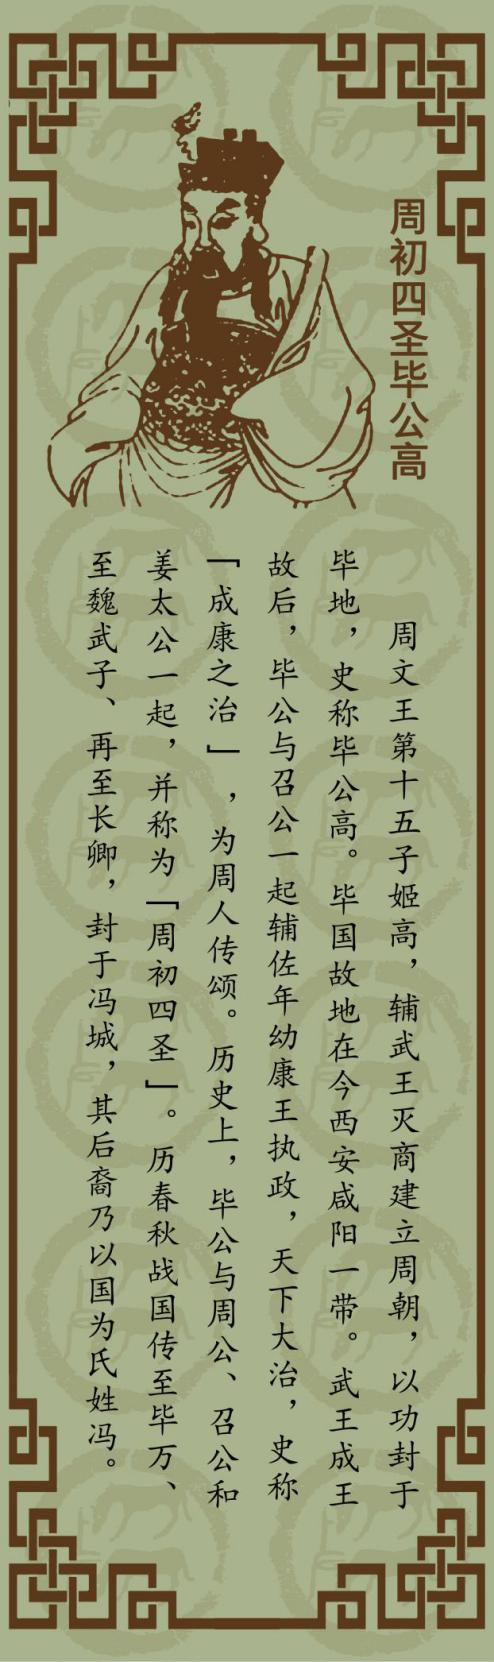 周初四圣毕公高
周文王第十五子姬高，辅武王灭商建立周朝，以功封于
毕地，史称毕公高。毕国故地在今西安咸阳一带。武王成王
故后，毕公与召公一起辅佐年幼康王执政，天下大治，史称
「成康之治」，为周人传颂。历史上，毕公与周公、召公和
姜太公一起，并称为「周初四圣」。历春秋战国传至毕万、
至魏武子、再至长卿，封于冯城，其后裔乃以国为氏姓冯。